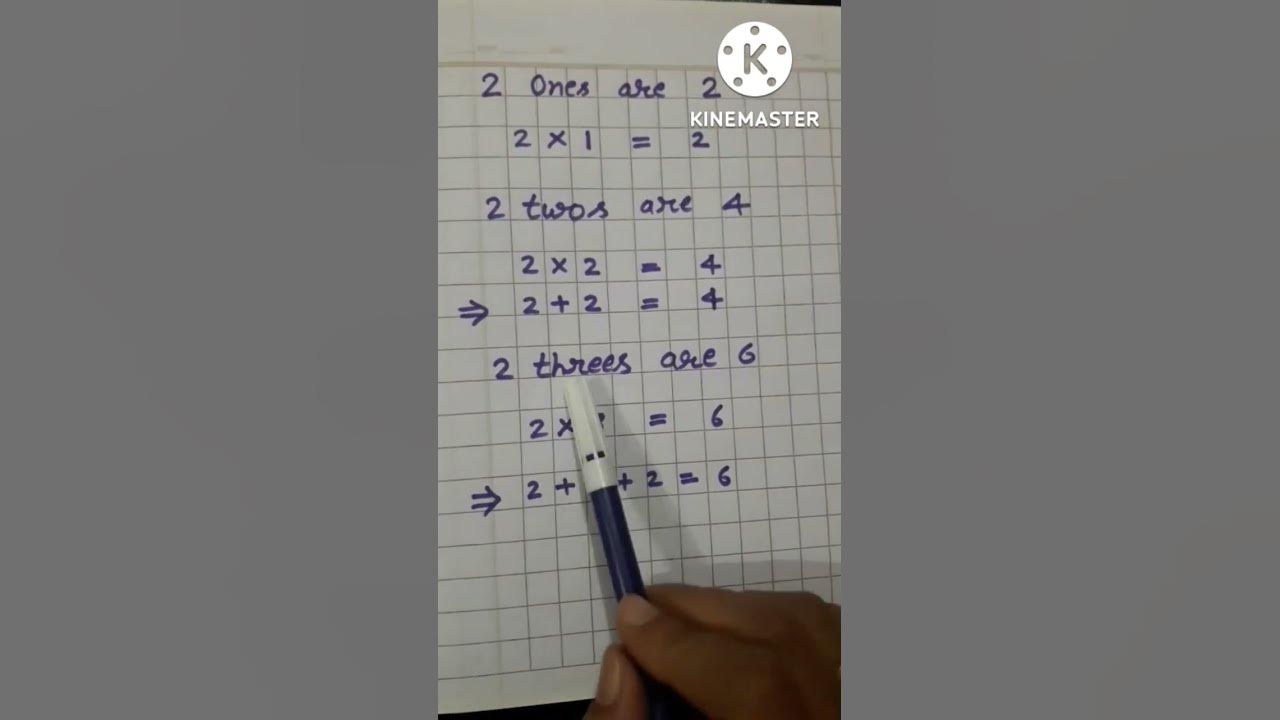 2 Ones are 2
2 × 1 = 2
2 twos are 4
2 × 2 = 4
⇒ 2 + 2 = 4
2 threes are 6
2 × = 6
⇒ 2 + + 2 = 6
K
KINEMASTER